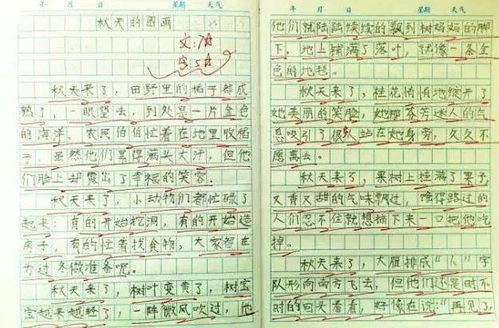 年 月 日 星期 天气
秋天的图画
秋天来了，田野里的稻子都成
熟了，一眼望去，到处是一片金色
的海洋。农民伯伯忙着在地里收稻
子，虽然他们累得满头大汗，但他
们脸上却露出了幸福的笑容。
秋天来了，小动物们都忙碌了
起来，有的开始挖洞，有的开始造
房子，有的忙着找食物，大家都在
为过冬做准备呢。
秋天来了，树叶变黄了，树宝
宝越来越轻了，一阵微风吹过，他
年 月 日 星期 天气
他们就陆陆续续的飘到树妈妈的脚
下。地上铺满了落叶，就像一条金
色的地毯。
秋天来了，桂花悄悄地绽开了
她美丽的笑脸，她那芬芳迷人的气
息吸引了很多人站在她身旁，久久不
愿离去。
秋天来了，果树上挂满了果子，
又香又甜的气味飘过，馋得路过的
人们忍不住就想摘下来一口把他吃
掉。
秋天来了，大雁排成“人”字
队形向南方飞去，但他们还是时不
时的回头看看，好像在说：“再见了，